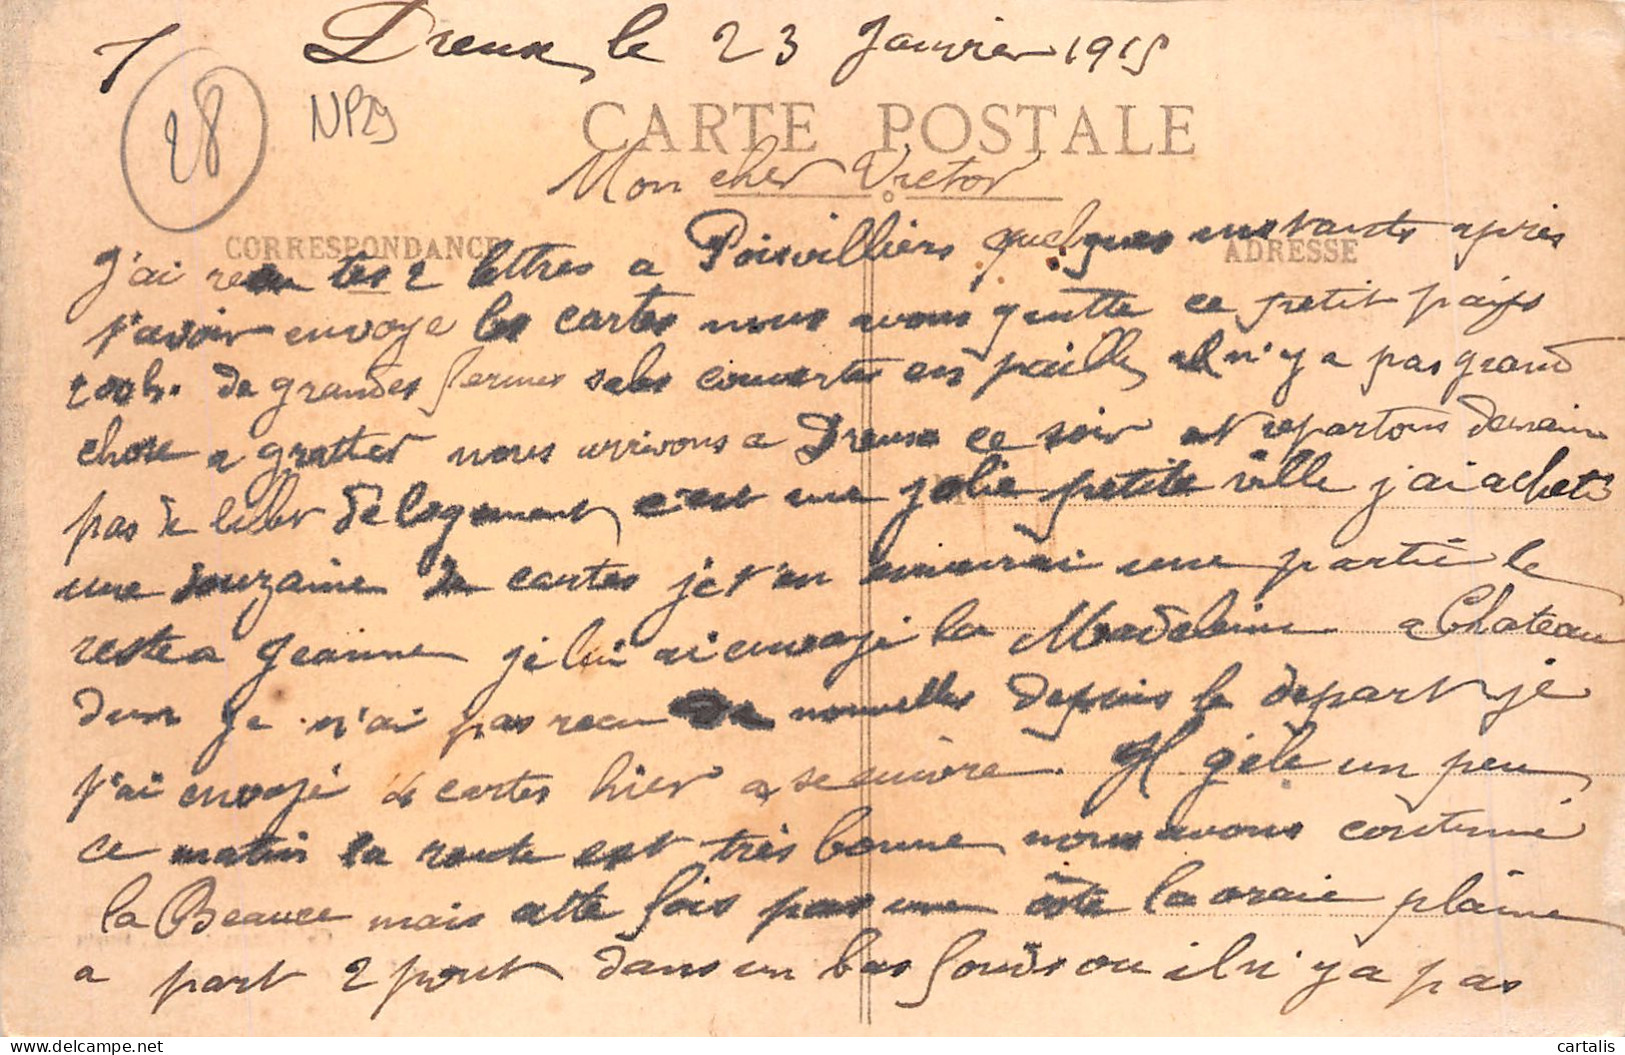 1 Dreux, le 23 Janvier 1915
28 NP29
CARTE POSTALE
Mon cher Victor
CORRESPONDANCE ADRESSE
J'ai recu tes 2 lettres a Poisvilliers quelques instants après
t'avoir envoye les cartes nous avons quitte ce petit pays
200 h. de grandes fermes sales couvertes en paille, il n'y a pas grand
chose a gratter nous arrivons a Dreux ce soir et repartons demain
pas de billet de logement, c'est une jolie petite ville j'ai acheté
une douzaine de cartes je t'en enverrai une partie le
reste a Jeanne je lui ai envoyé la Madeleine a Chateau
dun je n'ai pas recu de nouvelles depuis le depart je
t'ai envoyé 4 cartes hier a se suivre. Il gèle un peu
ce matin la route est très bonne, nous avons continué
la Beauce mais cette fois pas une côte la vraie plaine
a part 2 pont dans un bas fonds ou il n'y a pas
cartalis
delcampe.net